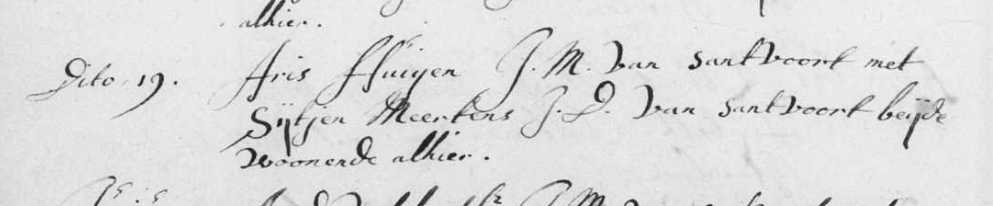 alhier.
Dito. 19. Aris Huigen J. M. van santvoort met
Sijtjen Meertens J. D. van santvoort beijde
woonende alhier.